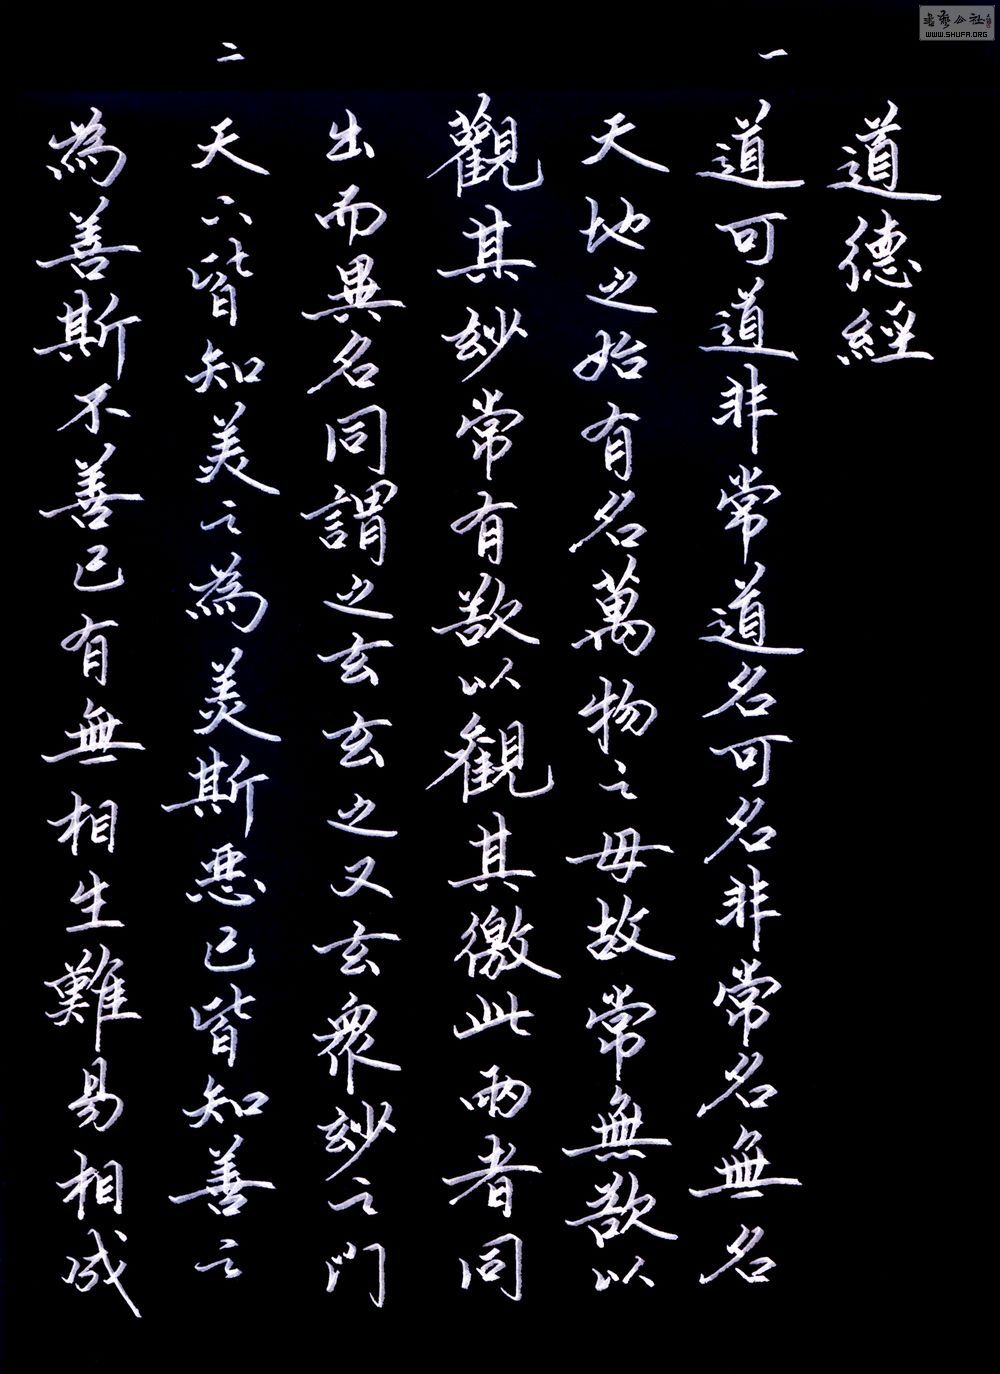 道德經
一
道可道非常道名可名非常名無名
天地之始有名萬物之母故常無欲以
觀其妙常有欲以觀其徼此兩者同
出而異名同謂之玄玄之又玄眾妙之門
二
天下皆知美之為美斯惡已皆知善之
為善斯不善已有無相生難易相成
書藝公社
WWW.SHUFA.ORG